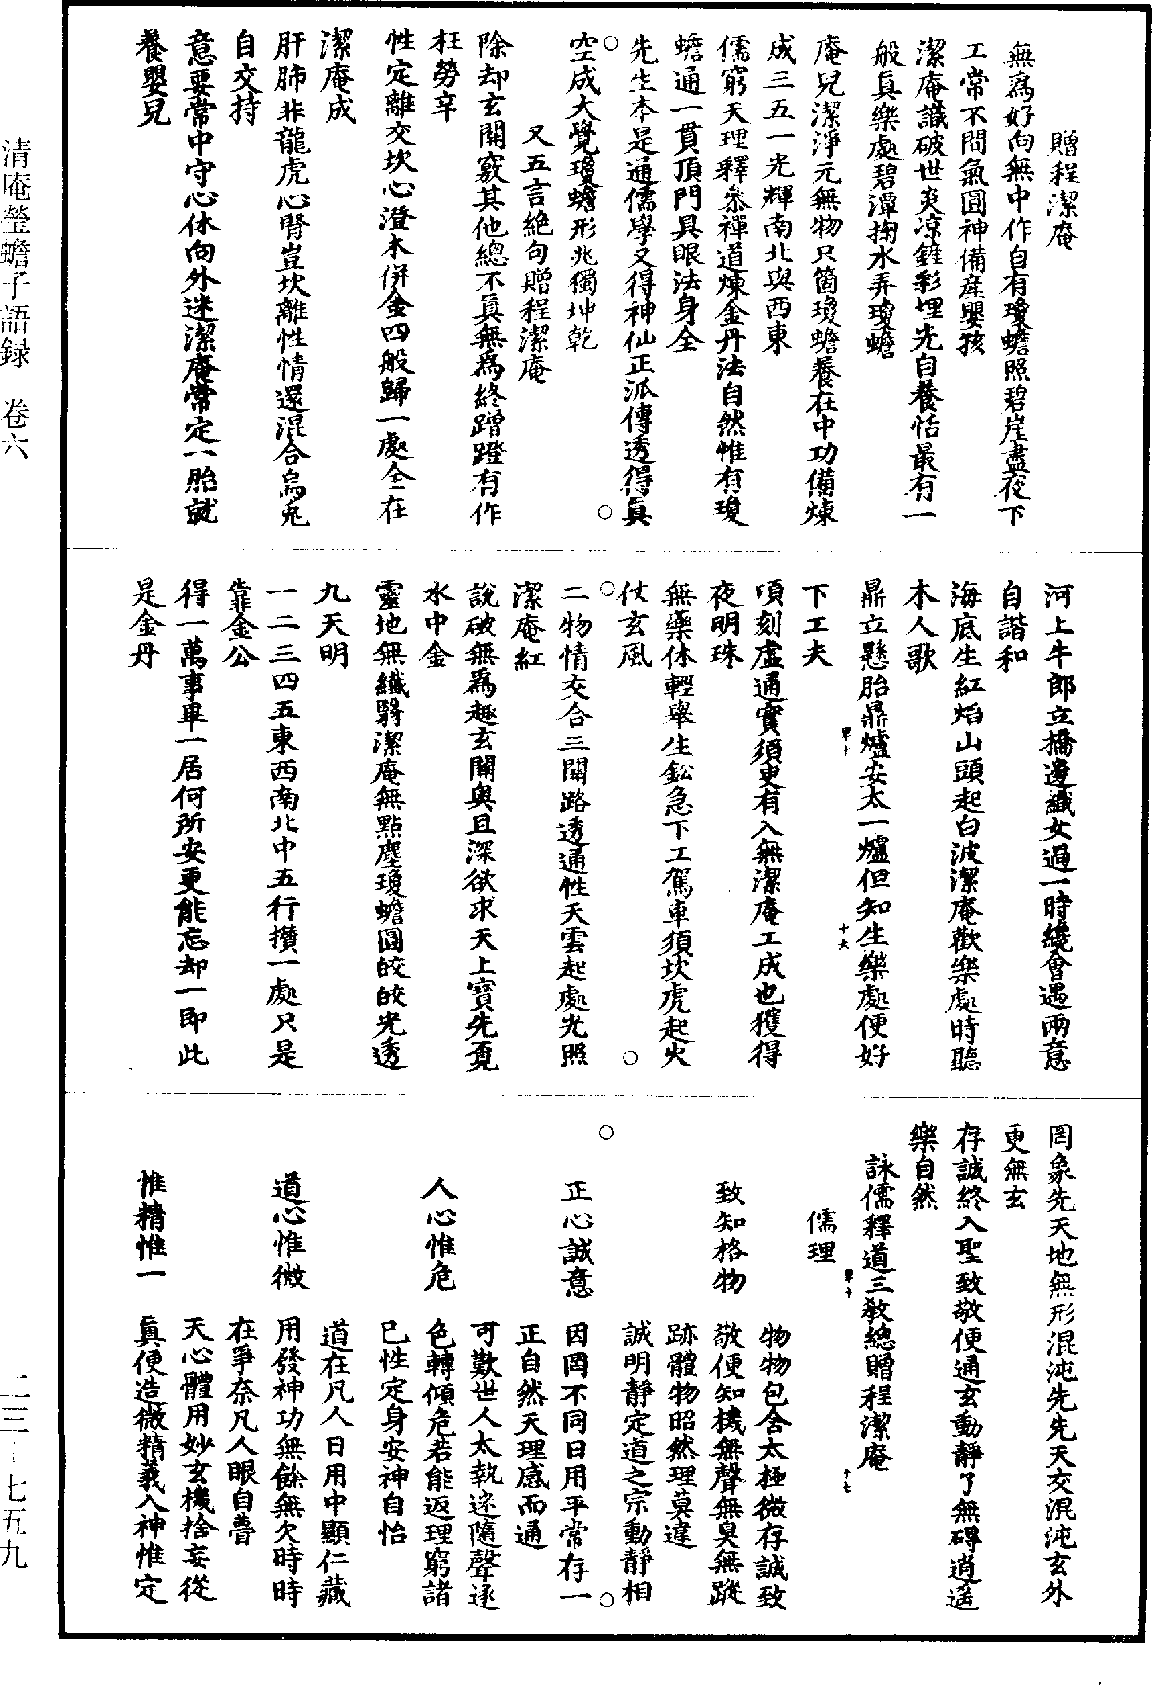 贈程潔庵
無爲好向無中作自有瓊蟾照碧崖晝夜下
工常不間氣圓神備産嬰孩
潔庵識破世炎凉鏟彩埋光自養恬最有一
般真樂處碧潭掬水弄瓊蟾
庵兒潔淨元無物只箇瓊蟾養在中功備煉
成三五一光輝南北與西東
儒窮天理釋叅禪道煉金丹法自然惟有瓊
蟾通一貫頂門具眼法身全
先生本是通儒學又得神仙正派傳透得真
空成大覺瓊蟾形兆獨坤乾
又五言絶句贈程潔庵
除却玄關竅其他總不真無爲終蹭蹬有作
枉勞辛
性定離交坎心澄木併金四般歸一處全在
潔庵成
肝肺非龍虎心腎豈坎離性情還混合烏兎
自交持
意要常中守心休向外迷潔庵常定一胎就
養嬰兒
河上牛郎立橋邊織女過一時纔會遇兩意
自諧和
海底生紅焰山頭起白波潔庵歡樂處時聽
木人歌
鼎立懸胎鼎爐安太一爐但知生樂處便好
下工夫
頃刻虛通實須臾有入無潔庵工成也獲得
夜明珠
無藥体輕舉生鉛急下工駕車須坎虎起火
仗玄風
二物情交合三關路透通性天雲起處光照
潔庵紅
說破無爲趣玄關奥且深欲求天上寳先覔
水中金
靈地無纖翳潔庵無點塵瓊蟾圓皎皎光透
九天明
一二三四五東西南北中五行攢一處只是
靠金公
得一萬事畢一居何所安更能忘却一即此
是金丹
罔象先天地無形混沌先先天交混沌玄外
更無玄
存誠終入聖致敬便通玄動靜了無碍逍遥
樂自然
詠儒釋道三教總贈程潔庵
儒理
致知格物 物物包含太極微存誠致
敬便知機無聲無臭無蹤
跡體物昭然理莫違
正心誠意 誠明靜定道之宗動靜相
因罔不同日用平常存一
正自然天理感而通
人心惟危 可歎世人太執迷隨聲逐
色轉傾危若能返理窮諸
已性定身安神自怡
道心惟微 道在凡人日用中顯仁藏
用發神功無餘無欠時時
在爭奈凡人眼自瞢
惟精惟一 天心體用妙玄機捨妄從
真便造微精義入神惟定
清庵瑩蟾子語録 卷六
二三—七五九